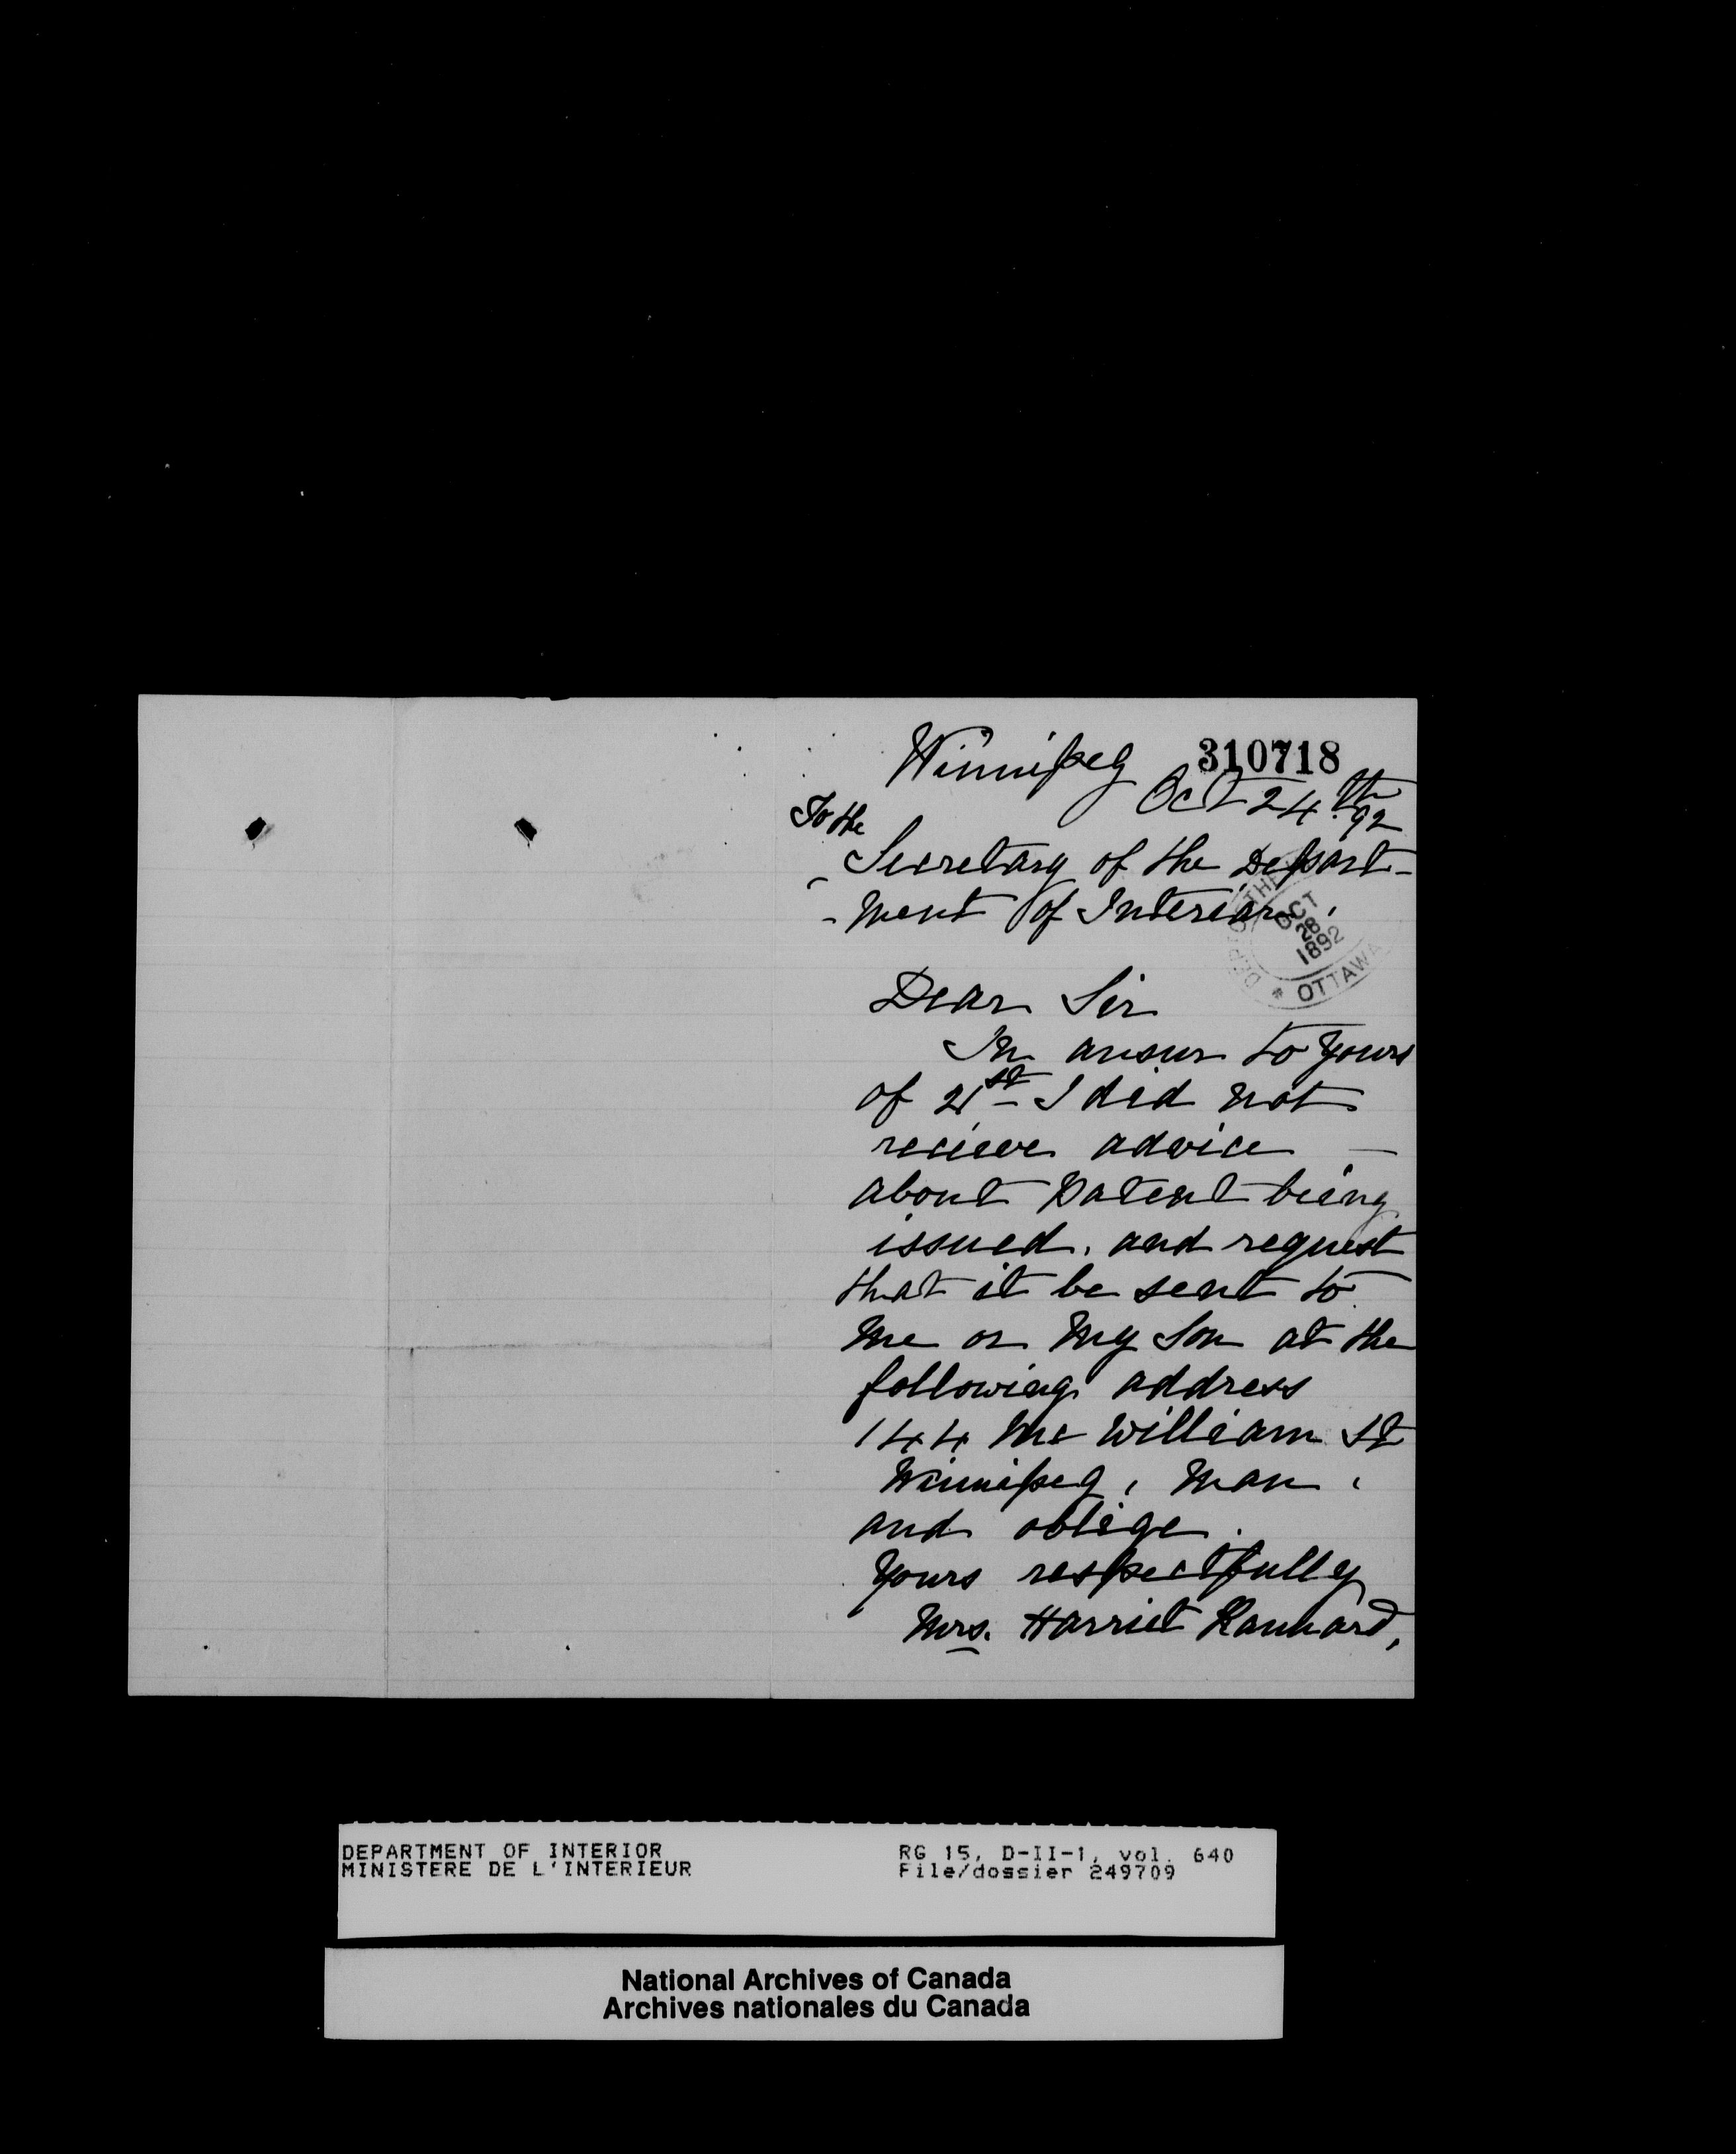 Winnipeg 310718
Oct 24th 92
To the
Secretary of the Depart-
-ment of Interior.
DEPT OF THE
OCT
28
1892
* OTTAWA
Dear Sir
In answr to yours
of 21st I did not
recieve advice
about Patent being
issued, and request
that it be sent to
me or my Son at the
following address
144 Mc William St
Winnipeg, Man.
and oblige.
Yours respectfully
Mrs. Harriet
DEPARTMENT OF INTERIOR RG 15, D-II-1, vol. 640
MINISTERE DE L'INTERIEUR File/dossier 249709
National Archives of Canada
Archives nationales du Canada